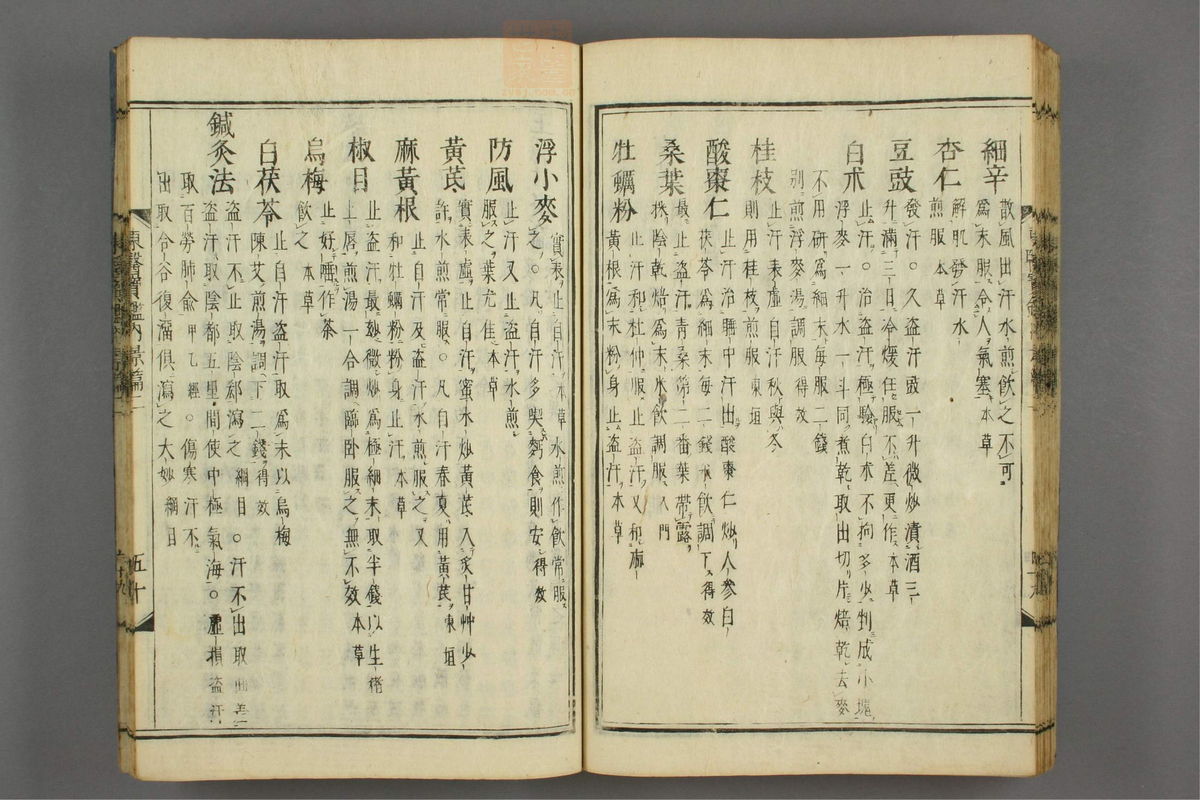 細辛
散風出汗水煎飲之不可
爲末服令人氣塞本草
杏仁
解肌發汗水
煎服本草
豆豉
發汗○久盜汗豉一升微炒漬酒三
升滿三日冷煖任服不差更作本草
白朮
止汗○治盜汗極驗白朮不拘多少剉成小塊
浮麥一升水一斗同煮乾取出切片焙乾去麥
不用硏爲細末每服二錢
別煎浮麥湯調服得效
桂枝
止汗表虛自汗秋與冬
則用桂枝煎服東垣
酸棗仁
止汗治睡中汗出酸棗仁炒人參白
茯苓爲細末每二錢水飮調下得效
桑葉
最止盜汗靑桑第二番葉帶露
採陰乾焙爲末水飮調服入門
牡蠣粉
止汗和杜仲服止盜汗又和麻
黃根爲末粉身止盜汗本草
浮小麥
實表止自汗本草水煎作飮常服
之○凡自汗多喫麪食則安得效
防風
止汗又止盜汗水煎
服之葉尤佳本草
黃芪
實表虛止自汗蜜水炒黃芪入炙甘艸少
許水煎常服○凡自汗春夏用黃芪東垣
麻黃根
止自汗及盜汗水煎服之又
和牡蠣粉粉身止汗本草
椒目
止盜汗最玅微炒爲極細末取半錢以生猪
上脣煎湯一合調臨臥服之無不效本草
烏梅
止好睡作茶
飮之本草
白茯苓
止自汗盜汗取爲末以烏梅
陳艾煎湯調下二錢得效
鍼灸法
盜汗不止取陰郄瀉之綱目○汗不出取曲差
盜汗取陰都五里間使中極氣海○虛損盜汗
取百勞肺兪甲乙經○傷寒汗不
出取合谷復溜俱瀉之大妙綱目
東醫寶鑑內景篇二
五十